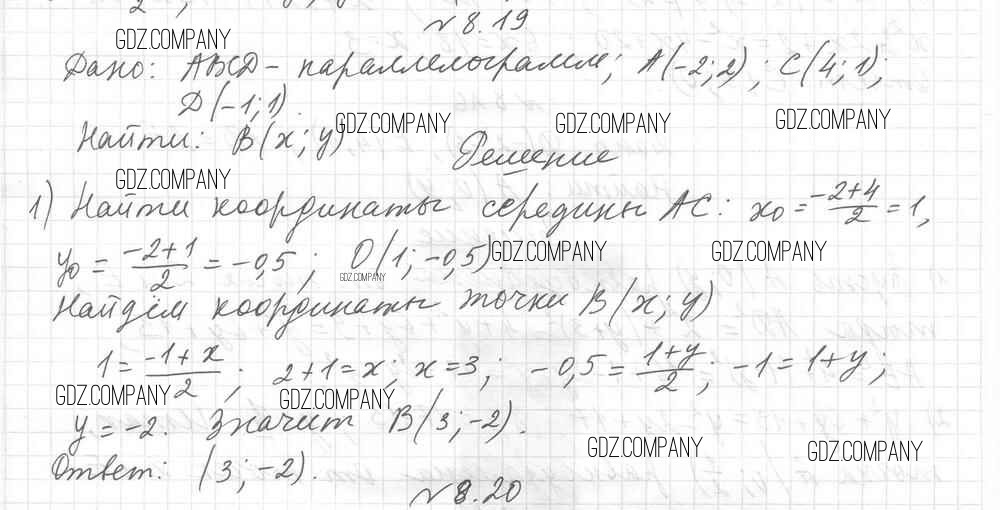 № 8.19
GDZ.COMPANY
Дано: ABCD - параллелограмм; A(-2; 2); C(4; 1);
D(-1; 1).
GDZ.COMPANY GDZ.COMPANY GDZ.COMPANY
Найти: B(x; y)
Решение
GDZ.COMPANY
1) Найти координаты середины AC: x₀ = (-2+4)/2 = 1,
y₀ = (-2+1)/2 = -0,5; O(1; -0,5). GDZ.COMPANY GDZ.COMPANY
GDZ.COMPANY
Найдём координаты точки B(x; y)
1 = (-1+x)/2; 2+1=x; x=3; -0,5 = (1+y)/2; -1=1+y;
GDZ.COMPANY GDZ.COMPANY
y = -2. Значит B(3; -2).
GDZ.COMPANY GDZ.COMPANY
Ответ: (3; -2).
№ 8.20